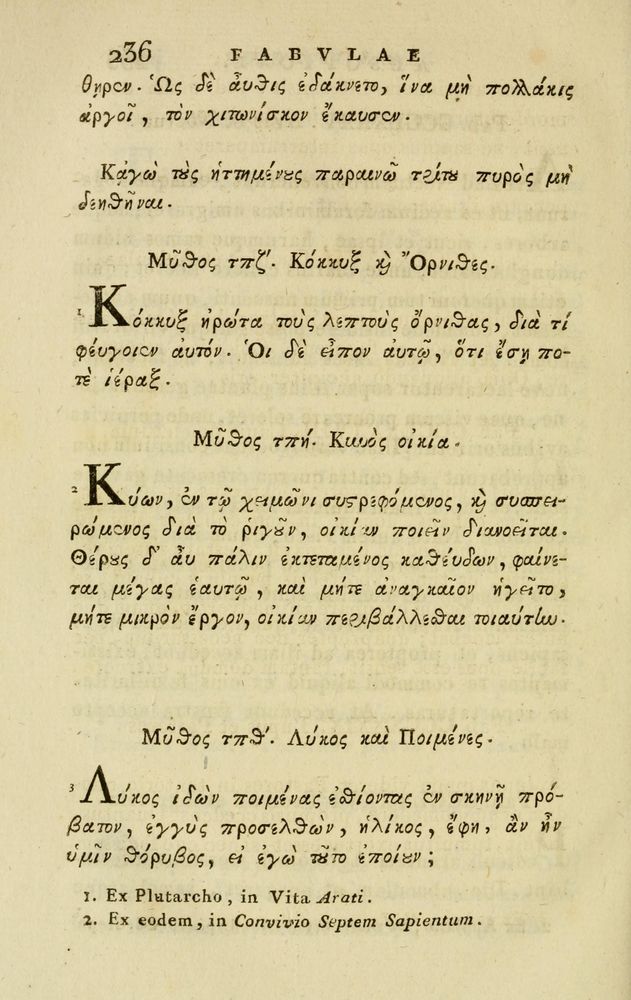 236 FABVLAE
θηρεν. Ὡς δὲ ἆυθις ἐδάκνετο, ἵνα μὴ πολλάκις
ἀργοῖ, τὸν χιτωνίσκον ἔκαυσεν.
Κᾀγὼ τοὺς ἡττημένους παραινῶ τρίτου πυρὸς μὴ
δεηθῆναι.
Μῦθος τπζʹ. Κόκκυξ καὶ Ὄρνιθες.
¹ Κόκκυξ ἠρώτα τοὺς λεπτοὺς ὄρνιθας, διὰ τί
φέυγοιεν ἀυτόν. Ὁι δὲ εἶπον ἀυτῷ, ὅτι ἔσῃ πο-
τὲ ἱέραξ.
Μῦθος τπή. Κυνὸς οἰκία.
² Κύων, ἐν τῷ χειμῶνι συστρεφόμενος, καὶ συσπει-
ρώμενος διὰ τὸ ῥιγοῦν, οἰκίαν ποιεῖν διανοεῖται.
Θέρους δ᾽ ἆυ πάλιν ἐκτεταμένος καθέυδων, φαίνε-
ται μέγας ἑαυτῷ, καὶ μήτε ἀναγκαῖον ἡγεῖτο,
μήτε μικρὸν ἔργον, οἰκίαν περιβάλλεσθαι τοιαύτην.
Μῦθος τπθʹ. Λύκος καὶ Ποιμένες.
³ Λύκος ἰδὼν ποιμένας ἐσθίοντας ἐν σκηνῇ πρό-
βατον, ἐγγὺς προσελθὼν, ἡλίκος, ἔφη, ἂν ἦν
ὑμῖν θόρυβος, εἰ ἐγὼ τοῦτο ἐποίουν;
1. Ex Plutarcho, in Vita Arati.
2. Ex eodem, in Convivio Septem Sapientum.